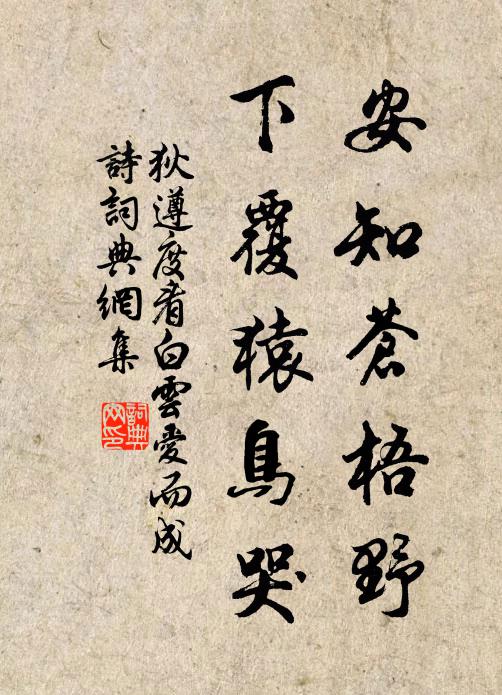 安知蒼梧野
下覆猿鳥哭
狄遵度看白雲愛而成
詩詞典網集
詞典
网印